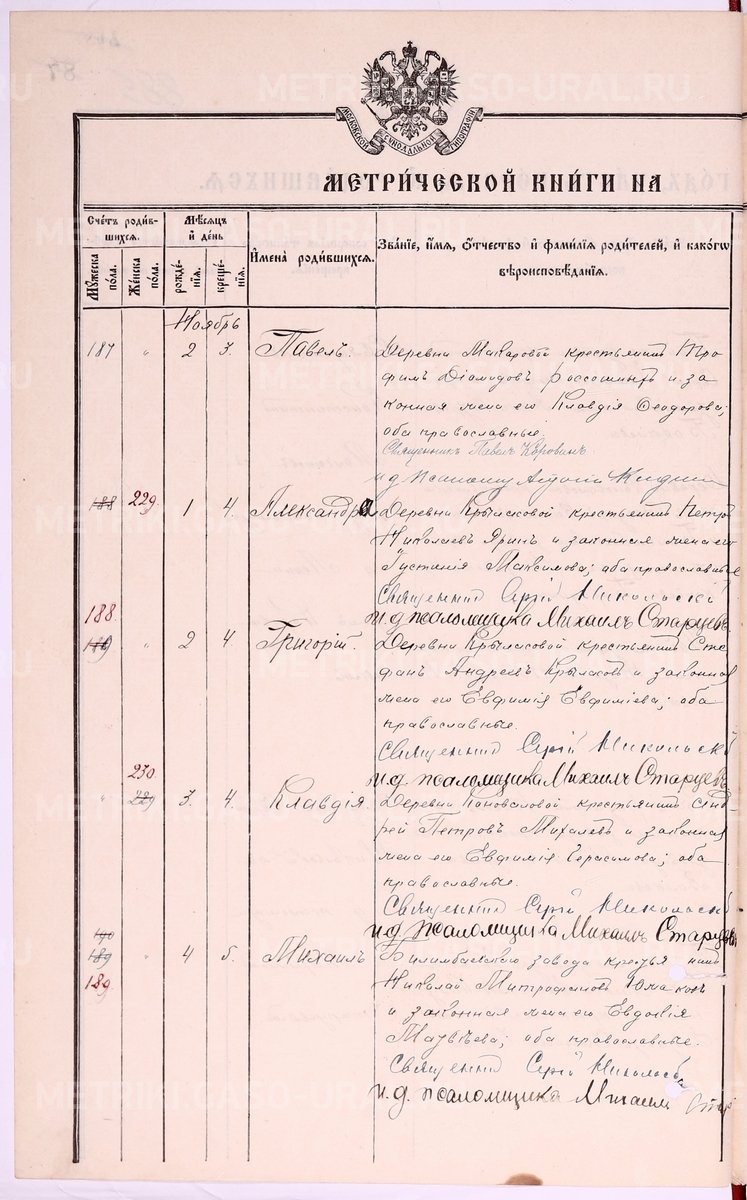 МОСКОВСКОЙ СѴНОДАЛЬНОЙ ТИПОГРАФІИ
МЕТРИЧЕСКОЙ КНИГИ НА
Счетъ родив-
шихся.
Мужеска
пола.
Женска
пола.
Мѣсяцъ
и день
рожде-
нія.
креще-
нія.
Имена родившихся.
Званіе, имя, отчество и фамилія родителей, и какогѡ
вѣроисповѣданія.
Ноябрь
187 " 2 3. Павелъ. Деревни Макаровой крестьянинъ Тро
фимъ Діомидовъ Россошныхъ и за
конная жена его Клавдія Ѳеодорова;
оба православные.
Священникъ Павелъ Коровинъ.
и д Псаломщ
188 229. 1 4. Александра Деревни Крыласовой крестьянинъ Петръ
Николаевъ Яринъ и законная жена его
Іустинія Максимова; оба православные
Священник Сергій Никольскій
188.
и. д. псаломщика Михаилъ Старцевъ.
189 " 2 4. Григорій. Деревни Крыласовой крестьянинъ Сте
фанъ Андреевъ Крыласовъ и законная
жена его Евфимія Евфиміева; оба
православные.
Священник Сергій Никольскій
230.
и. д. псаломщика Михаилъ Старцевъ
" 229 3. 4. Клавдія. Деревни Коноваловой крестьянинъ Анд
рей Петровъ Михалевъ и законная
жена его Евфимія Герасимова; оба
православные.
Священник Сергій Никольскій
190
и. д. псаломщика Михаилъ Старцевъ
189 " 4 5. Михаилъ Билимбаевскаго завода крестьянинъ
189
Николай Митрофановъ Юмакои
и законная жена его Евдокія
Матвѣева; оба православные.
Священник Сергій Никольскій
и. д. псаломщика Михаилъ Стар
METRIKI.GASO-URAL.RU